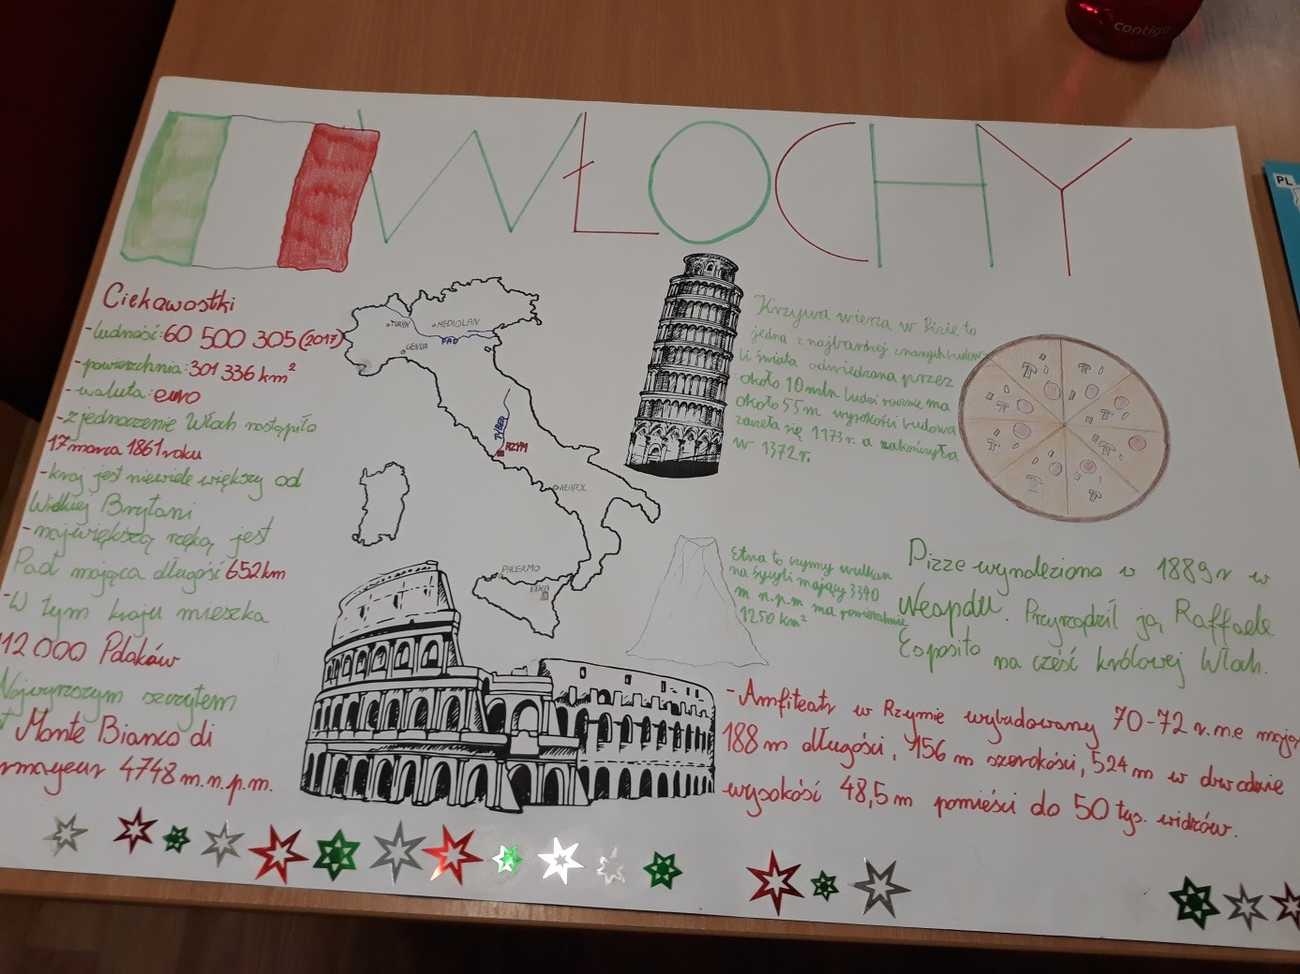 contigo
PL
WŁOCHY
Ciekawostki
-ludność: 60 500 305 (2017)
-powierzchnia: 301 336 km²
-waluta: euro
-zjednoczenie Włoch nastąpiło
17 marca 1861 roku
-kraj jest niewiele większy od
Wielkiej Brytani
-największą rzeką jest
Pad mająca długość 652km
-W tym kraju mieszka
112 000 Polaków
Najwyższym szczytem
Monte Bianco di
rmayeur 4748 m.n.p.m.
TURYN
MEDIOLAN
GENUA
PAD
TYBER
RZYM
NEAPOL
PALERMO
ETNA
Krzywa wieża w Pizie to
jedna z najbardziej znanych budow
li świata odwiedzana przez
około 10 mln ludzi rocznie ma
około 55 m wysokości budowa
zaczęła się 1173 r. a zakończyła
w 1372 r.
Etna to czynny wulkan
na Sycyli mający 3340
m n.p.m ma powierzchnie
1250 km²
Pizze wynaleziono w 1889 r w
Neapolu. Przyrządził ją Raffaele
Esposito na cześć królowej Włoch.
-Amfiteatr w Rzymie wybudowany 70-72 r. n.e mając
188 m długości, 156 m szerokości, 524 m w obwodzie
wysokość 48,5 m pomieści do 50 tys. widzów.